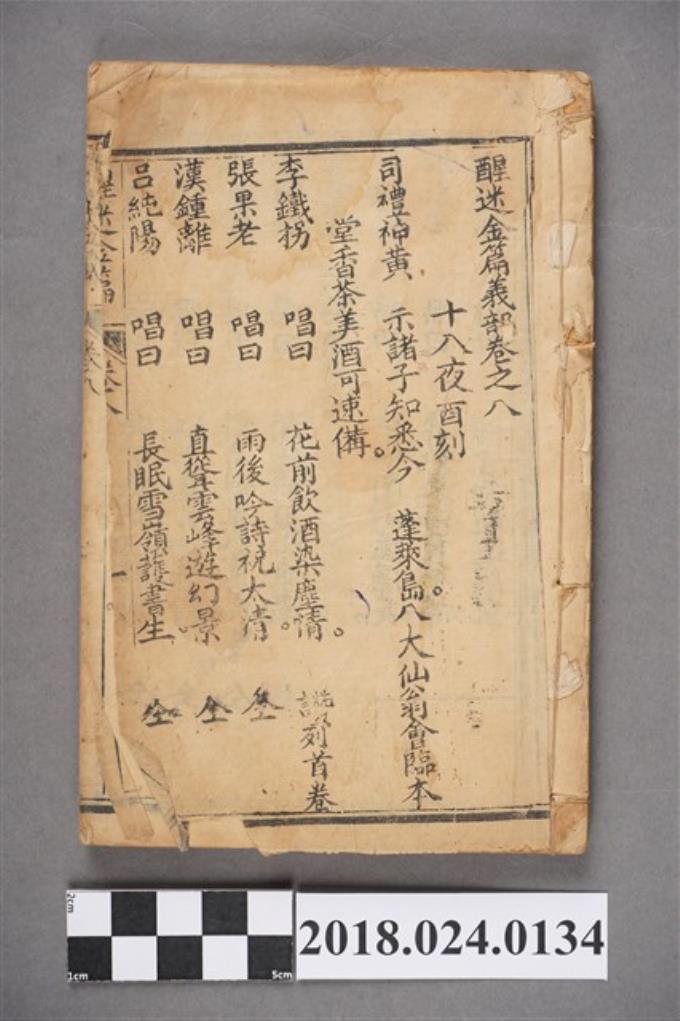 醒迷金篇義部卷之八
十八夜酉刻
司禮神黃 示諸子知悉今 蓬萊島。八大仙翁會臨本
堂香茶美酒可速備。
李鐵拐 唱曰 花前飲酒染塵情。 說列首卷
張果老 唱曰 雨後吟詩祝太清。 仝
漢鍾離 唱曰 直聳雲峰遊幻景 仝
呂純陽 唱曰 長眠雪嶺護書生 仝
醒迷金篇 卷八
2cm
1cm
5cm
2018.024.0134